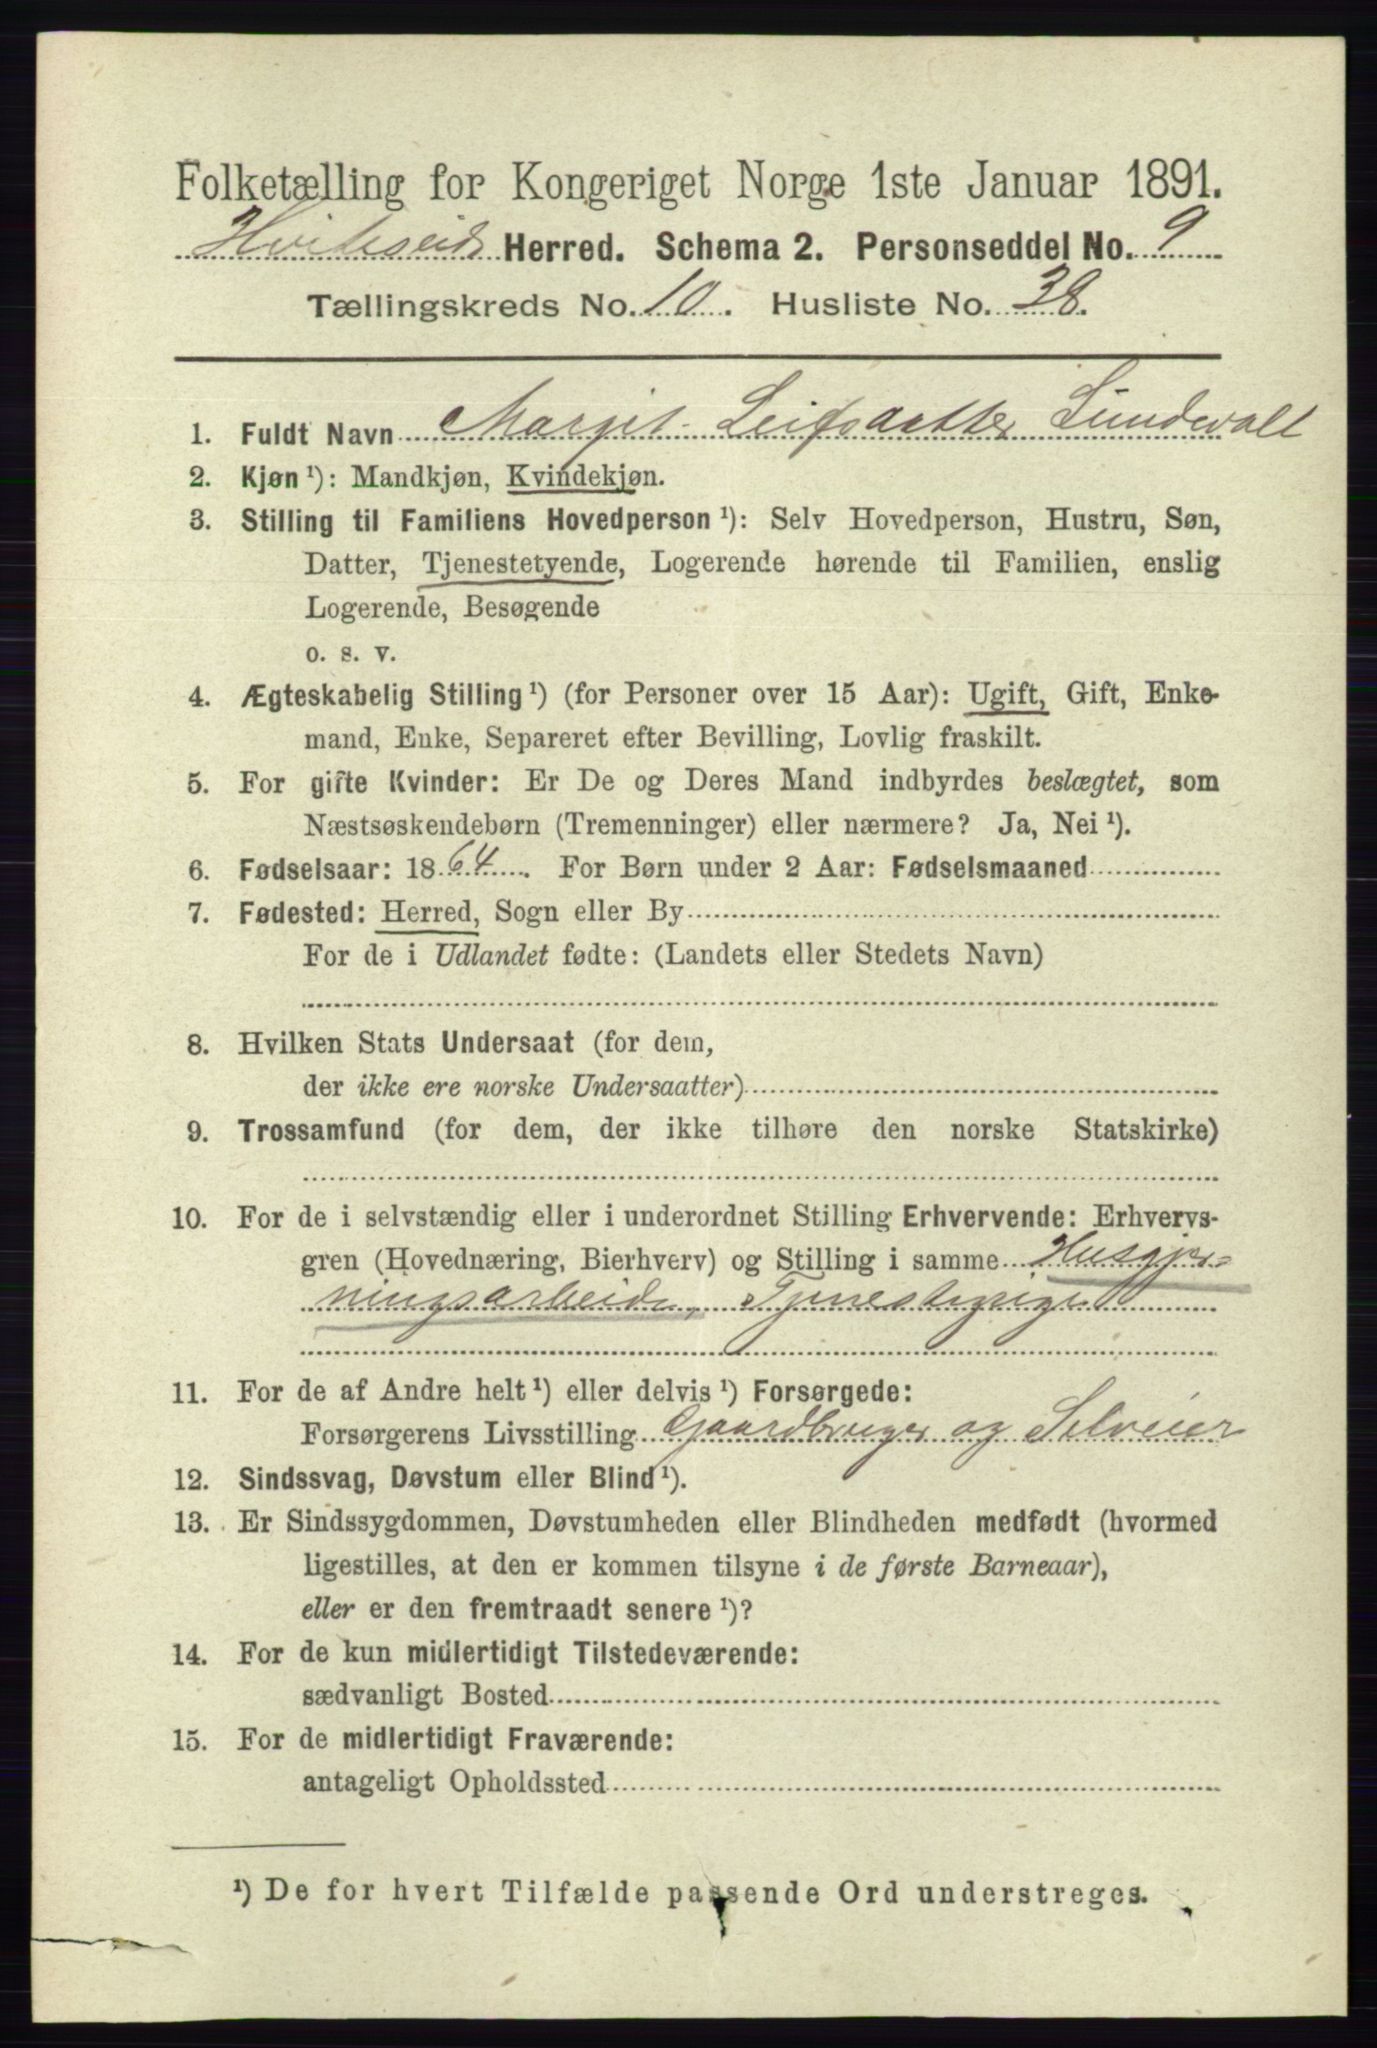 Folketælling for Kongeriget Norge 1ste Januar 1891.
Hviteseid Herred. Schema 2. Personseddel No. 9
Tællingskreds No. 10. Husliste No. 38.
1. Fuldt Navn Margit Leifsdatter Lundevall
2. Kjøn ¹): Mandkjøn, Kvindekjøn.
3. Stilling til Familiens Hovedperson ¹): Selv Hovedperson, Hustru, Søn,
Datter, Tjenestetyende, Logerende hørende til Familien, enslig
Logerende, Besøgende
o. s. v.
4. Ægteskabelig Stilling ¹) (for Personer over 15 Aar): Ugift, Gift, Enke-
mand, Enke, Separeret efter Bevilling, Lovlig fraskilt.
5. For gifte Kvinder: Er De og Deres Mand indbyrdes beslægtet, som
Næstsøskendebørn (Tremenninger) eller nærmere? Ja, Nei ¹).
6. Fødselsaar: 1864. For Børn under 2 Aar: Fødselsmaaned
7. Fødested: Herred, Sogn eller By
For de i Udlandet fødte: (Landets eller Stedets Navn)
8. Hvilken Stats Undersaat (for dem,
der ikke ere norske Undersaatter)
9. Trossamfund (for dem, der ikke tilhøre den norske Statskirke)
10. For de i selvstændig eller i underordnet Stilling Erhvervende: Erhvervs-
gren (Hovednæring, Bierhverv) og Stilling i samme Husgjer-
ningsarbeide, Tjenestepige
11. For de af Andre helt ¹) eller delvis ¹) Forsørgede:
Forsørgerens Livsstilling Gaardbruger og Selveier
12. Sindssvag, Døvstum eller Blind ¹).
13. Er Sindssygdommen, Døvstumheden eller Blindheden medfødt (hvormed
ligestilles, at den er kommen tilsyne i de første Barneaar),
eller er den fremtraadt senere ¹)?
14. For de kun midlertidigt Tilstedeværende:
sædvanligt Bosted
15. For de midlertidigt Fraværende:
antageligt Opholdssted
¹) De for hvert Tilfælde passende Ord understreges.